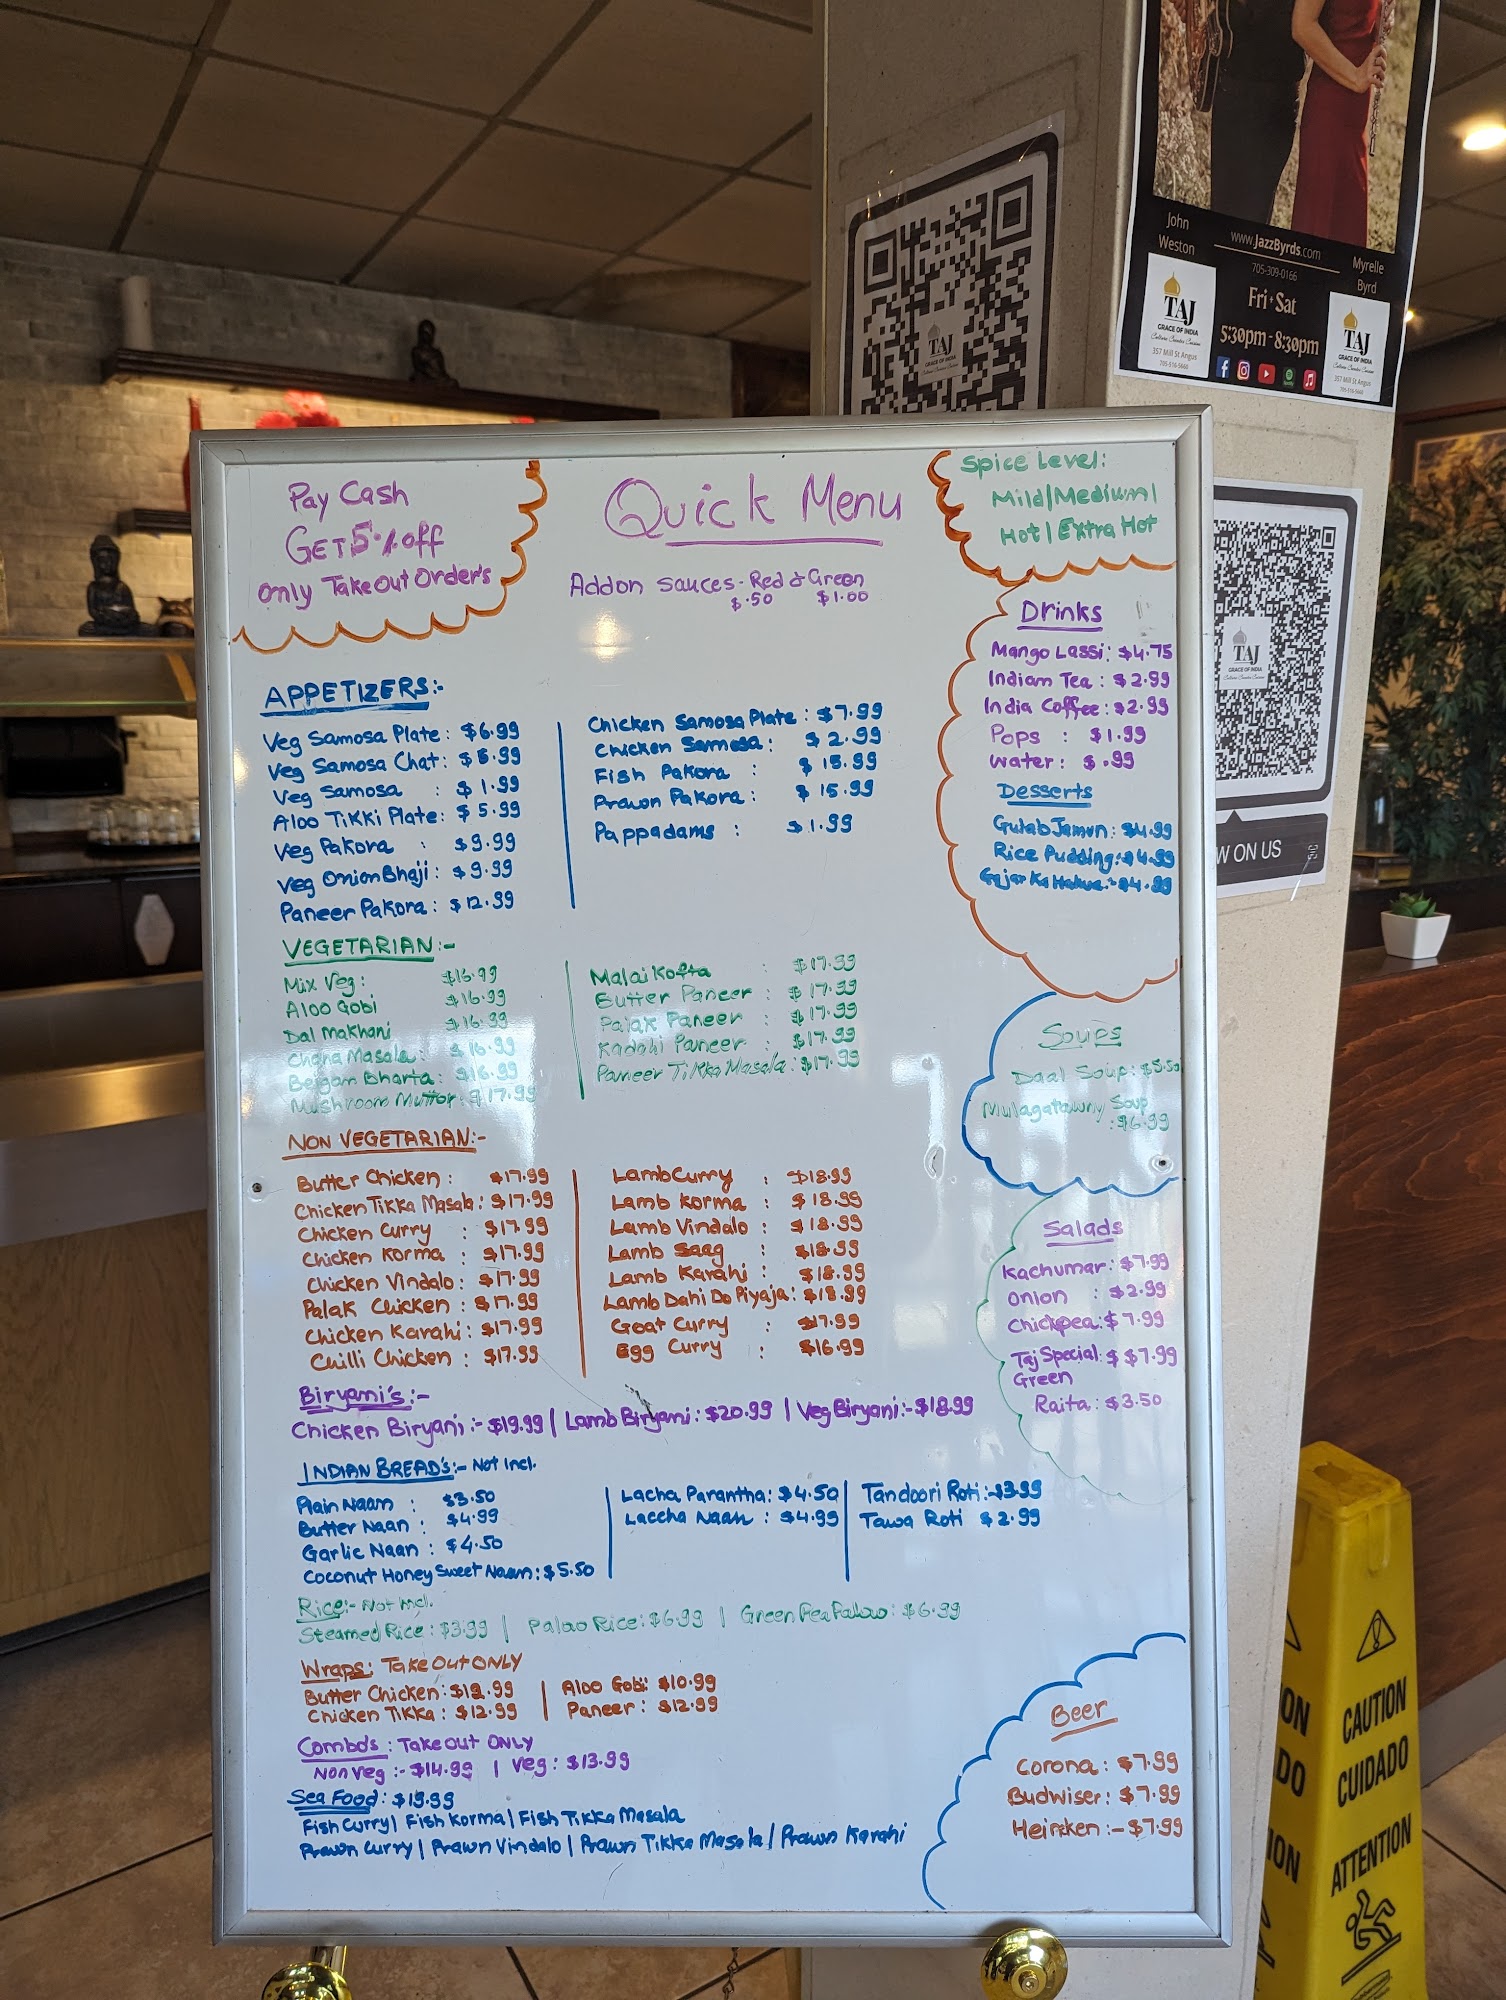 John
Weston
www.JazzByrds.com
705-309-0166
Myrelle
Byrd
Fri + Sat
5:30pm - 8:30pm
TAJ
GRACE OF INDIA
357 Mill St Angus
705-516-5660
TAJ
GRACE OF INDIA
357 Mill St Angus
705-516-5660
TAJ
GRACE OF INDIA
Pay Cash
GET 5% off
Only Take Out Order's
Quick Menu
Addon Sauces - Red & Green
$.50 $1.00
Spice Level:
Mild/Medium/
Hot/Extra Hot
APPETIZERS:-
Veg Samosa Plate: $6.99
Veg Samosa Chat:
Veg Samosa : $1.99
Aloo Tikki Plate: $5.99
Veg Pakora : $9.99
Veg Onion Bhaji: $9.99
Paneer Pakora: $12.99
Chicken Samosa Plate: $7.99
Chicken Samosa: $2.99
Fish Pakora : $15.99
Prawn Pakora: $15.99
Pappadams : $1.99
VEGETARIAN:-
Mix Veg: $16.99
Aloo Gobi $16.99
Dal Makhani $16.99
Chana Masala: $16.99
Beigam Bharta: $16.99
Mushroom Mutter: $17.99
Malai Kofta : $17.99
Butter Paneer : $17.99
Palak Paneer : $17.99
Kadahi Paneer : $17.99
Paneer Tikka Masala: $17.99
NON VEGETARIAN:-
Butter Chicken: $17.99
Chicken Tikka Masala: $17.99
Chicken Curry : $17.99
Chicken Korma : $17.99
Chicken Vindalo: $17.99
Palak Chicken : $17.99
Chicken Karahi: $17.99
Chilli Chicken : $17.99
Lamb Curry : $18.99
Lamb Korma : $18.99
Lamb Vindalo : $18.99
Lamb Saag : $18.99
Lamb Karahi : $18.99
Lamb Dahi Do Piyaja: $18.99
Goat Curry : $17.99
Egg Curry : $16.99
Biryani's:-
Chicken Biryani:- $19.99 | Lamb Biryani: $20.99 | Veg Biryani:- $18.99
INDIAN BREAD's:- Not Incl.
Plain Naan : $3.50
Butter Naan : $4.99
Garlic Naan : $4.50
Coconut Honey Sweet Naan: $5.50
Lacha Parantha: $4.50
Laccha Naan : $4.99
Tandoori Roti:- $3.99
Tawa Roti $2.99
Rice:- Not Incl.
Steamed Rice: $3.99 | Palao Rice: $6.99 | Green Pea Palao: $6.99
Wraps: Take Out ONLY
Butter Chicken: $12.99
Chicken Tikka: $12.99
Aloo Gobi: $10.99
Paneer: $12.99
Combo's: Take out ONLY
Non Veg:- $14.99 | Veg: $13.99
Sea Food: $19.99
Fish Curry | Fish Korma | Fish Tikka Masala
Prawn Curry | Prawn Vindalo | Prawn Tikka Masala | Prawn Karahi
Drinks
Mango Lassi: $4.75
Indian Tea: $2.99
India Coffee: $2.99
Pops : $1.99
Water: $.99
Desserts
Gulab Jamun: $4.99
Rice Pudding: $4.99
Gajar Ka Halwa:- $4.99
Soups
Daal Soup: $5.50
Mulagatawny Soup
: $6.99
Salads
Kachumar: $7.99
Onion : $2.99
Chickpea: $7.99
Taj Special: $ $7.99
Green
Raita: $3.50
Beer
Corona: $7.99
Budwiser: $7.99
Heineken:- $7.99
TAJ
GRACE OF INDIA
W ON US
CAUTION
CUIDADO
ATTENTION
ON
DO
ION